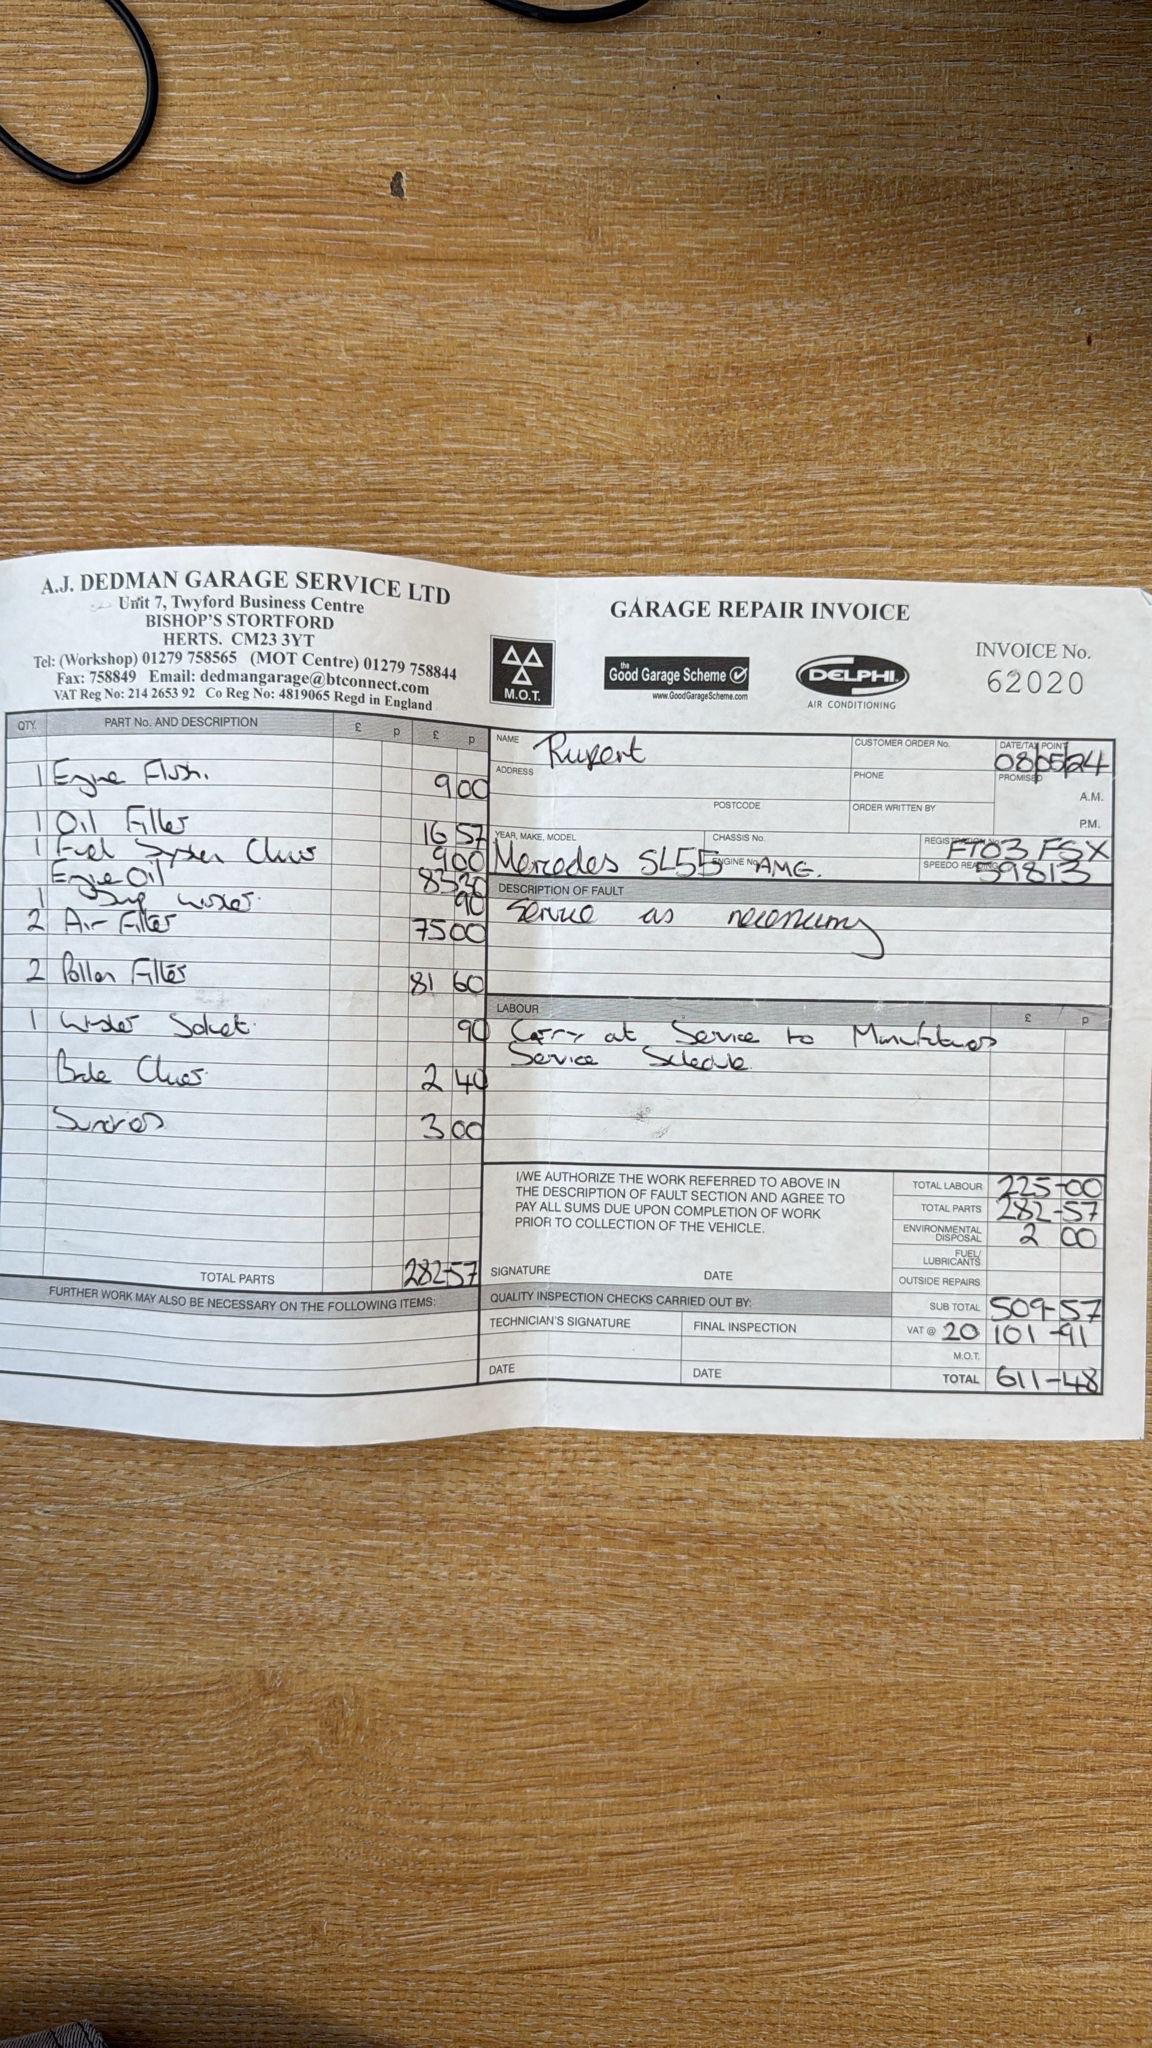 A.J. DEDMAN GARAGE SERVICE LTD
Unit 7, Twyford Business Centre
BISHOP'S STORTFORD
HERTS. CM23 3YT
Tel: (Workshop) 01279 758565 (MOT Centre) 01279 758844
Fax: 758849 Email: dedmangarage@btconnect.com
VAT Reg No: 214 2653 92 Co Reg No: 4819065 Regd in England
M.O.T.
GARAGE REPAIR INVOICE
the Good Garage Scheme
www.GoodGarageScheme.com
DELPHI
AIR CONDITIONING
INVOICE No.
62020
QTY. PART No. AND DESCRIPTION £ p £ p
1 Engine Flush. 9 00
1 Oil Filter 16 57
1 Fuel System 9 00
Engine Oil 83 20
1 Sump washer. 90
2 Air Filter 75 00
2 Pollen Filter 81 60
1 90
2 40
Sundries 3 00
TOTAL PARTS 282-57
FURTHER WORK MAY ALSO BE NECESSARY ON THE FOLLOWING ITEMS:
NAME Rupert
CUSTOMER ORDER No.
DATE/TAX POINT 08/05/24
ADDRESS
PHONE
PROMISED
A.M.
POSTCODE
ORDER WRITTEN BY
P.M.
YEAR, MAKE, MODEL
CHASSIS No.
REGISTRATION No. FT03 FSX
Mercedes SL55 AMG.
ENGINE No.
SPEEDO READING 59813
DESCRIPTION OF FAULT
Service as necessary
LABOUR £ p
Carry out Service to Manufacturers
Service Schedule.
I/WE AUTHORIZE THE WORK REFERRED TO ABOVE IN
THE DESCRIPTION OF FAULT SECTION AND AGREE TO
PAY ALL SUMS DUE UPON COMPLETION OF WORK
PRIOR TO COLLECTION OF THE VEHICLE.
SIGNATURE DATE
TOTAL LABOUR 225-00
TOTAL PARTS 282-57
ENVIRONMENTAL
DISPOSAL 2 00
FUEL/
LUBRICANTS
OUTSIDE REPAIRS
QUALITY INSPECTION CHECKS CARRIED OUT BY:
SUB TOTAL 509-57
TECHNICIAN'S SIGNATURE FINAL INSPECTION
VAT @ 20 101-91
M.O.T.
DATE DATE
TOTAL 611-48